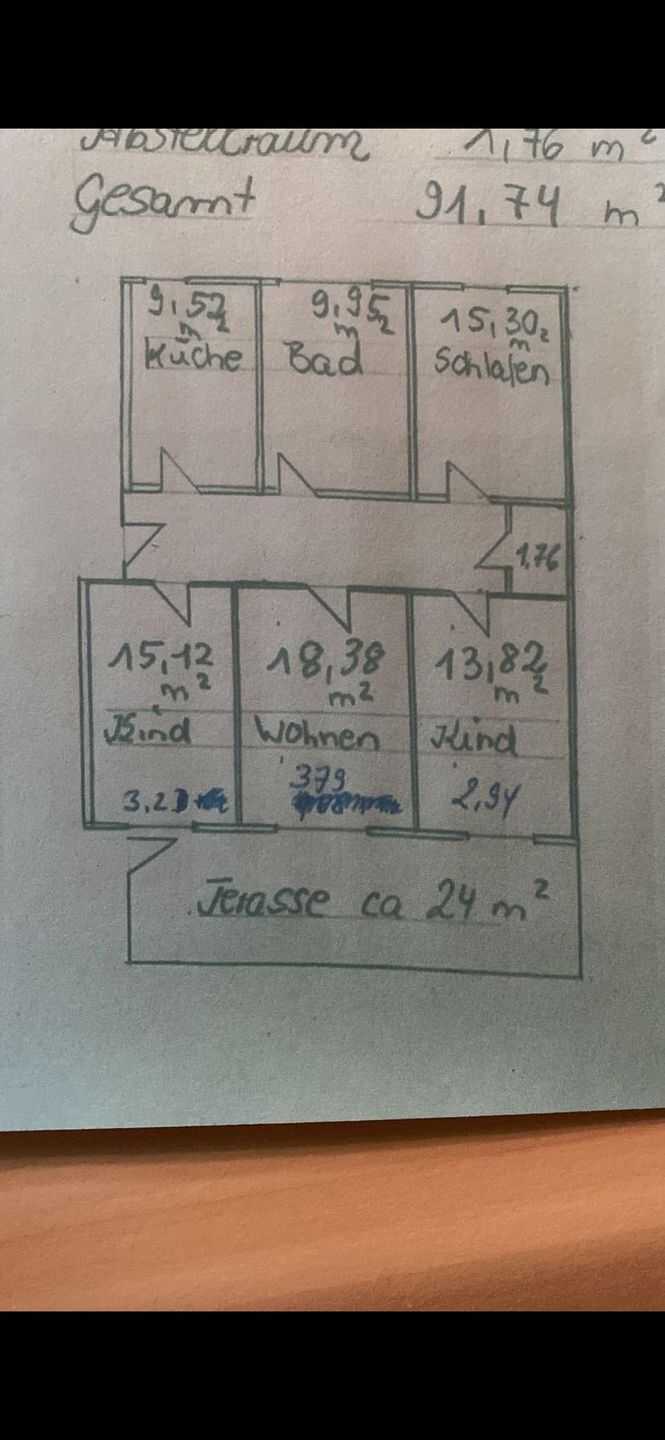 Abstellraum 1,76 m²
Gesamt 91,74 m²
9,52 m² 9,95 m² 15,30 m²
Küche Bad Schlafen
1,76
15,12 m² 18,38 m² 13,82 m²
Kind Wohnen Kind
3,23 379 2,94
Terasse ca 24 m²